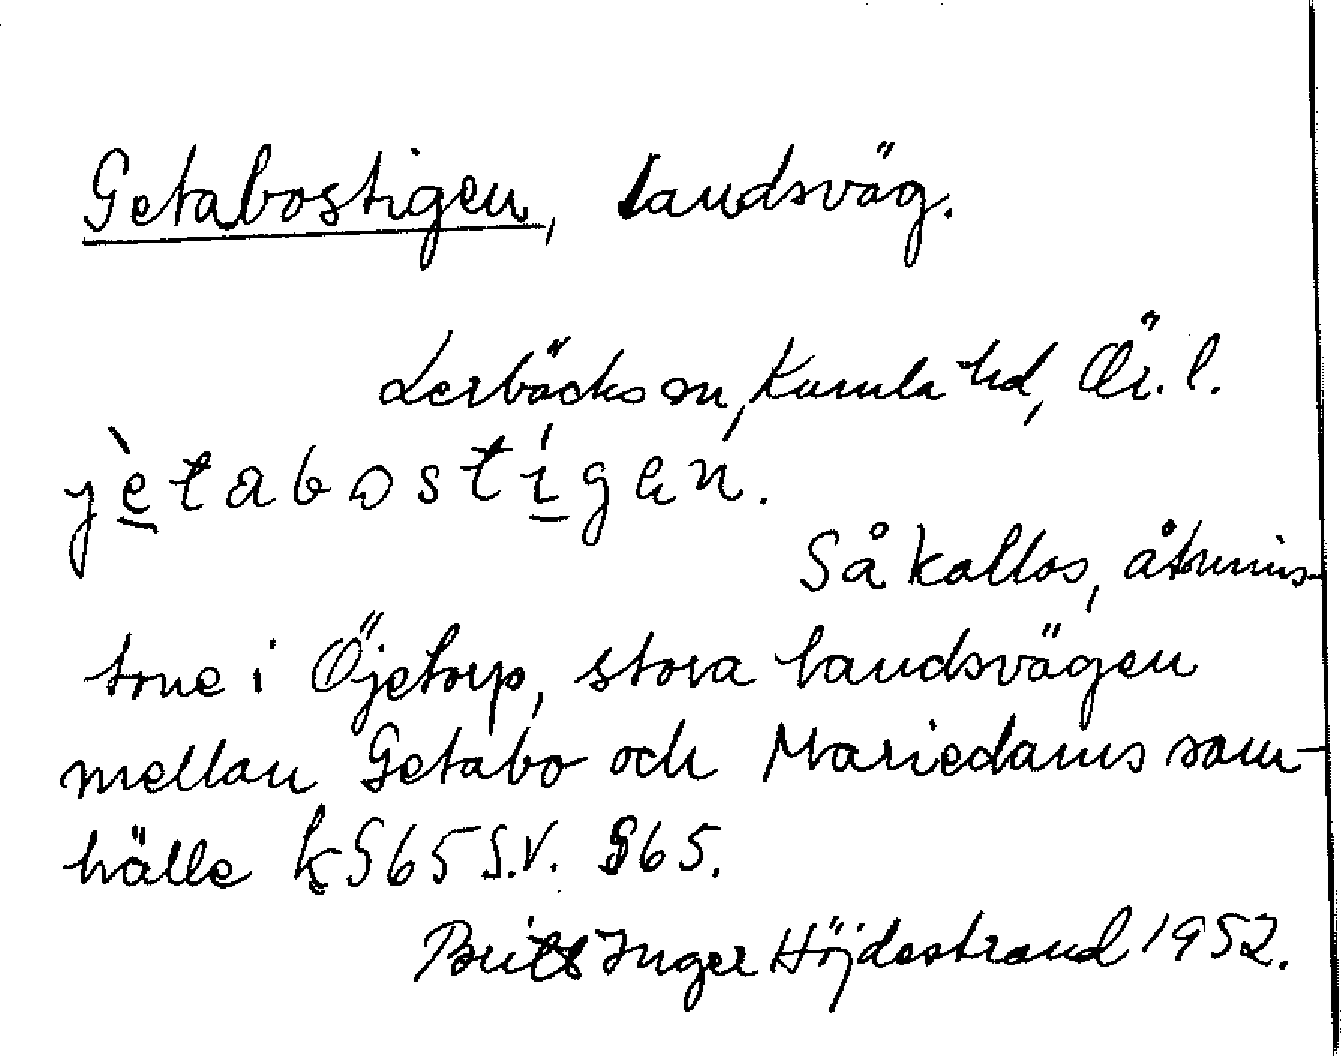 Getabostigen, landsväg.
Lerbäcks sn, Kumla hd, Ör. l.
jètabostígen.
Så kallas, åtmins-
tone i Öjetorp, stora landsvägen
mellan Getabo och Mariedams sam-
hälle k 565 S.V. 965.
Britt Inger Höjdestrand 1952.